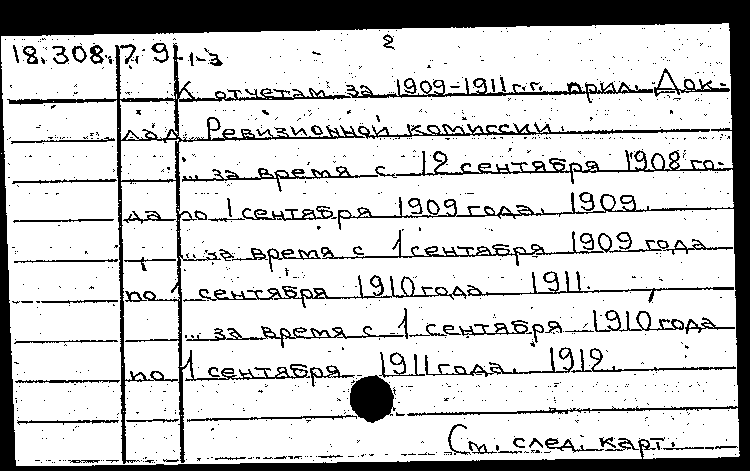 2
18.308.7.9 1-3
К отчетам за 1909-1911г.г. прил. Док-
лад Ревизионной комиссии.
... за время с 12 сентября 1908 го-
да по 1 сентября 1909 года. 1909.
... за время с 1 сентября 1909 года
по 1 сентября 1910 года 1911.
... за время с 1 сентября 1910 года
по 1 сентября 1911 года. 1912.
См. след. карт.